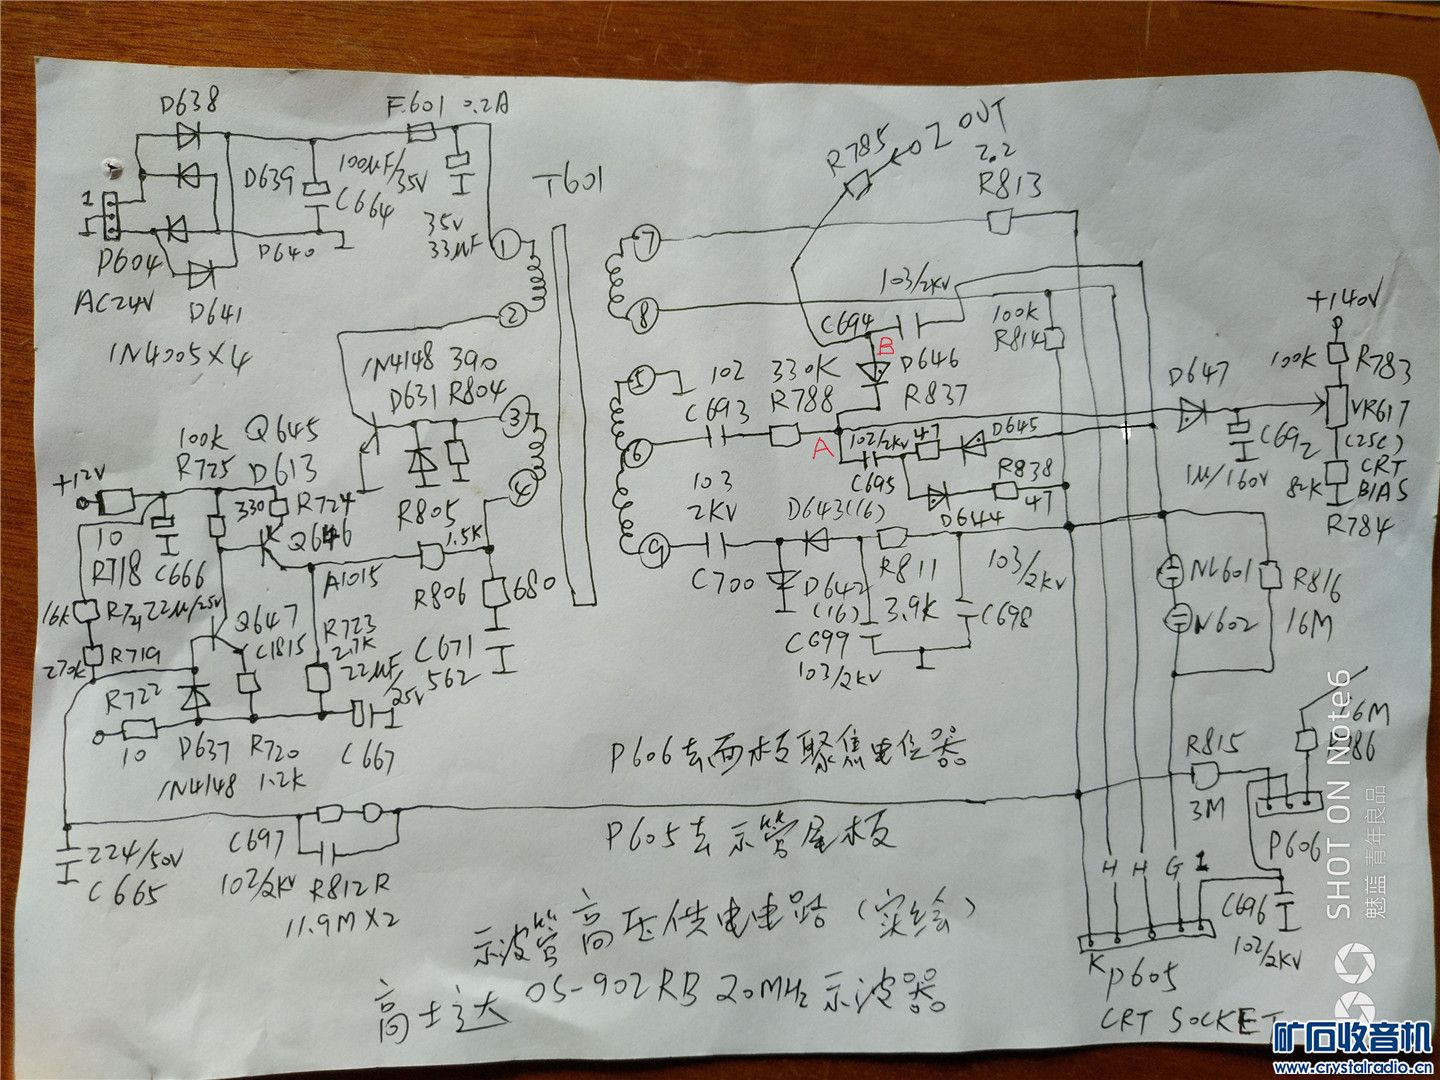 D638
F601 0.2A
100μF/35V
D639
C664
35V
33μF
T601
1
P604
AC24V
D640
D641
1N4005×4
R785
Z OUT
2.2
R813
1
2
3
4
5
6
7
8
9
103/2KV
C694
B
100K
R814
D646
R837
102
C693
330K
R788
A
102/2KV
C695
47
D645
R838
47
D644
D647
+140V
100K
R783
VR617
(25C)
CRT
BIAS
82K
R784
C692
1μ/160V
1N4148
D631
390
R804
Q645
D613
100K
R725
+12V
10
R718
C666
22μ/25V
330
R724
Q646
A1015
R805
1.5K
R806
680
C671
562
16K
R721
270K
R719
Q647
C1815
R723
2.7K
22μF/25V
C667
R722
10
D637
1N4148
R720
1.2K
103
2KV
C700
D643(16)
D642
(16)
R811
3.9K
C699
103/2KV
103/2KV
C698
NL601
N602
R816
16M
P606去面板聚焦电位器
P605去示管尾板
224/50V
C665
C697
102/2KV
R812R
11.9M×2
R815
3M
P606
H H G 1
C696
102/2KV
K
P605
CRT SOCKET
示波管高压供电电路（实绘）
高士达 OS-902RB 20MHz 示波器
SHOT ON Note6
魅蓝 青年良品
矿石收音机
www.crystalradio.cn